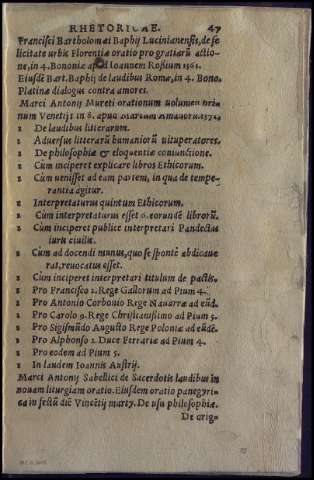 RHETORICAE. 47
Francisci Bartholomæi Baphij Lucinianensis, de fe
licitate urbis Florentiæ oratio pro gratiarũ actio-
ne, in 4. Bononiæ apud Ioannem Roßium 1561.
Eiusdẽ Bart. Baphij de laudibus Romæ, in 4. Bono.
Platinæ dialogus contra amores.
Marci Antonij Mureti orationum uolumen pri
num Venetijs in 8. apud 1572.
1 De laudibus litterarum.
2 Aduersus litterarũ humaniorũ uituperatores.
2 De philosophiæ & eloquentiæ coniunctione.
2 Cùm inciperet explicare libros Ethicorum.
2 Cum uenisset ad eam partem, in qua de tempe-
rantia agitur.
2 Interpretaturus quintum Ethicorum.
2 Cùm interpretaturus esset 6. eorundẽ librorũ.
2 Cùm inciperet publice interpretari Pandectas
iuris ciuilis.
2 Cùm ad docendi munus, quo se spontè abdicaue
rat, reuocatus esset.
2 Cùm inciperet interpretari titulum de pactis.
2 Pro Francisco 2. Rege Gallorum ad Pium 4.
2 Pro Antonio Borbonio Rege Nauarræ ad eũd.
2 Pro Carolo 9. Rege Christianissimo ad Pium 5.
2 Pro Sigismũdo Augusto Rege Poloniæ ad eũdẽ.
2 Pro Alphonso 2. Duce Ferrariæ ad Pium 4.
2 Pro eodem ad Pium 5.
2 In laudem Ioannis Austrij.
Marci Antonij Sabellici de Sacerdotis laudibus in
nouam liturgiam oratio. Eiusdem oratio panegyri-
ca in festũ diẽ Vincẽtij marty. De usu philosophiæ.
De orig-